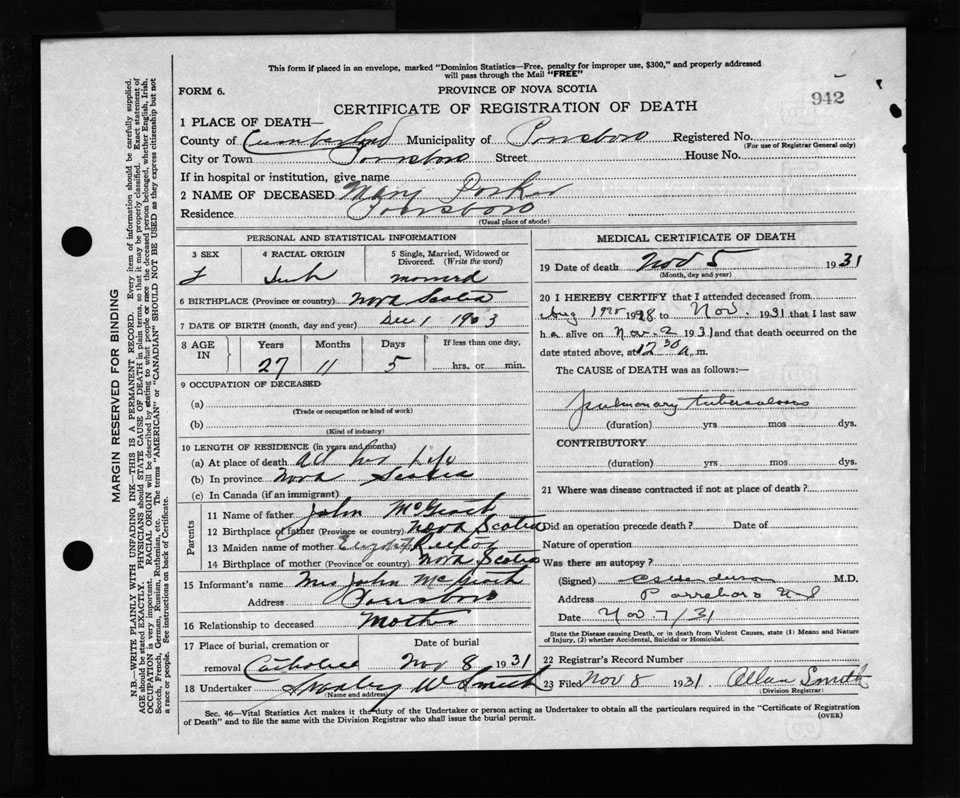 This form if placed in an envelope, marked "Dominion Statistics—Free, penalty for improper use, $300," and properly addressed
will pass through the Mail "FREE"
FORM 6.
PROVINCE OF NOVA SCOTIA
942
CERTIFICATE OF REGISTRATION OF DEATH
1 PLACE OF DEATH—
County of Cumberland Municipality of Parrsboro Registered No.
(For use of Registrar General only)
City or Town Parrsboro Street House No.
If in hospital or institution, give name
2 NAME OF DECEASED Mary
Residence Parrsboro
(Usual place of abode)
PERSONAL AND STATISTICAL INFORMATION
3 SEX 4 RACIAL ORIGIN 5 Single, Married, Widowed or Divorced. (Write the word)
F
6 BIRTHPLACE (Province or country) Nova Scotia
7 DATE OF BIRTH (month, day and year) Dec 1 1903
8 AGE IN Years Months Days If less than one day,
27 11 5 hrs. or min.
9 OCCUPATION OF DECEASED
(a)
(Trade or occupation or kind of work)
(b)
(Kind of industry)
10 LENGTH OF RESIDENCE (in years and months)
(a) At place of death All her Life
(b) In province Nova Scotia
(c) In Canada (if an immigrant)
Parents
11 Name of father John
12 Birthplace of father (Province or country) Nova Scotia
13 Maiden name of mother
14 Birthplace of mother (Province or country) Nova Scotia
15 Informant's name Mrs John
Address Parrsboro
16 Relationship to deceased Mother
17 Place of burial, cremation or Date of burial
removal Nov 8 1931
18 Undertaker W Smith
(Name and address)
MEDICAL CERTIFICATE OF DEATH
19 Date of death Nov 5 1931
(Month, day and year)
20 I HEREBY CERTIFY that I attended deceased from
Aug 1928 to Nov. 1931 that I last saw
h alive on Nov. 2 1931 and that death occurred on the
date stated above, at 12 30 a.m.
The CAUSE of DEATH was as follows:—
pulmonary tuberculosis
(duration) yrs mos dys.
CONTRIBUTORY.
(duration) yrs. mos. dys.
21 Where was disease contracted if not at place of death?
Did an operation precede death? Date of
Nature of operation
Was there an autopsy?
(Signed) M.D.
Address Parrsboro N S
Date Nov. 7/31
State the Disease causing Death, or in death from Violent Causes, state (1) Means and Nature
of Injury, (2) whether Accidental, Suicidal or Homicidal.
22 Registrar's Record Number
23 Filed Nov 8 1931. Allan Smith
(Division Registrar)
Sec. 46—Vital Statistics Act makes it the duty of the Undertaker or person acting as Undertaker to obtain all the particulars required in the "Certificate of Registration
of Death" and to file the same with the Division Registrar who shall issue the burial permit.
(OVER)
MARGIN RESERVED FOR BINDING
N.B.—WRITE PLAINLY WITH UNFADING INK—THIS IS A PERMANENT RECORD. Every item of information should be carefully supplied.
AGE should be stated EXACTLY. PHYSICIANS should STATE CAUSE OF DEATH in plain terms, so that it may be properly classified. Exact statement of
OCCUPATION is very important. RACIAL ORIGIN will be described by stating to what people or race the deceased person belonged, whether English, Irish,
Scotch, French, German, Russian, Ruthenian, etc. The terms "AMERICAN" or "CANADIAN" SHOULD NOT BE USED as they express citizenship but not
a race or people. See instructions on back of Certificate.